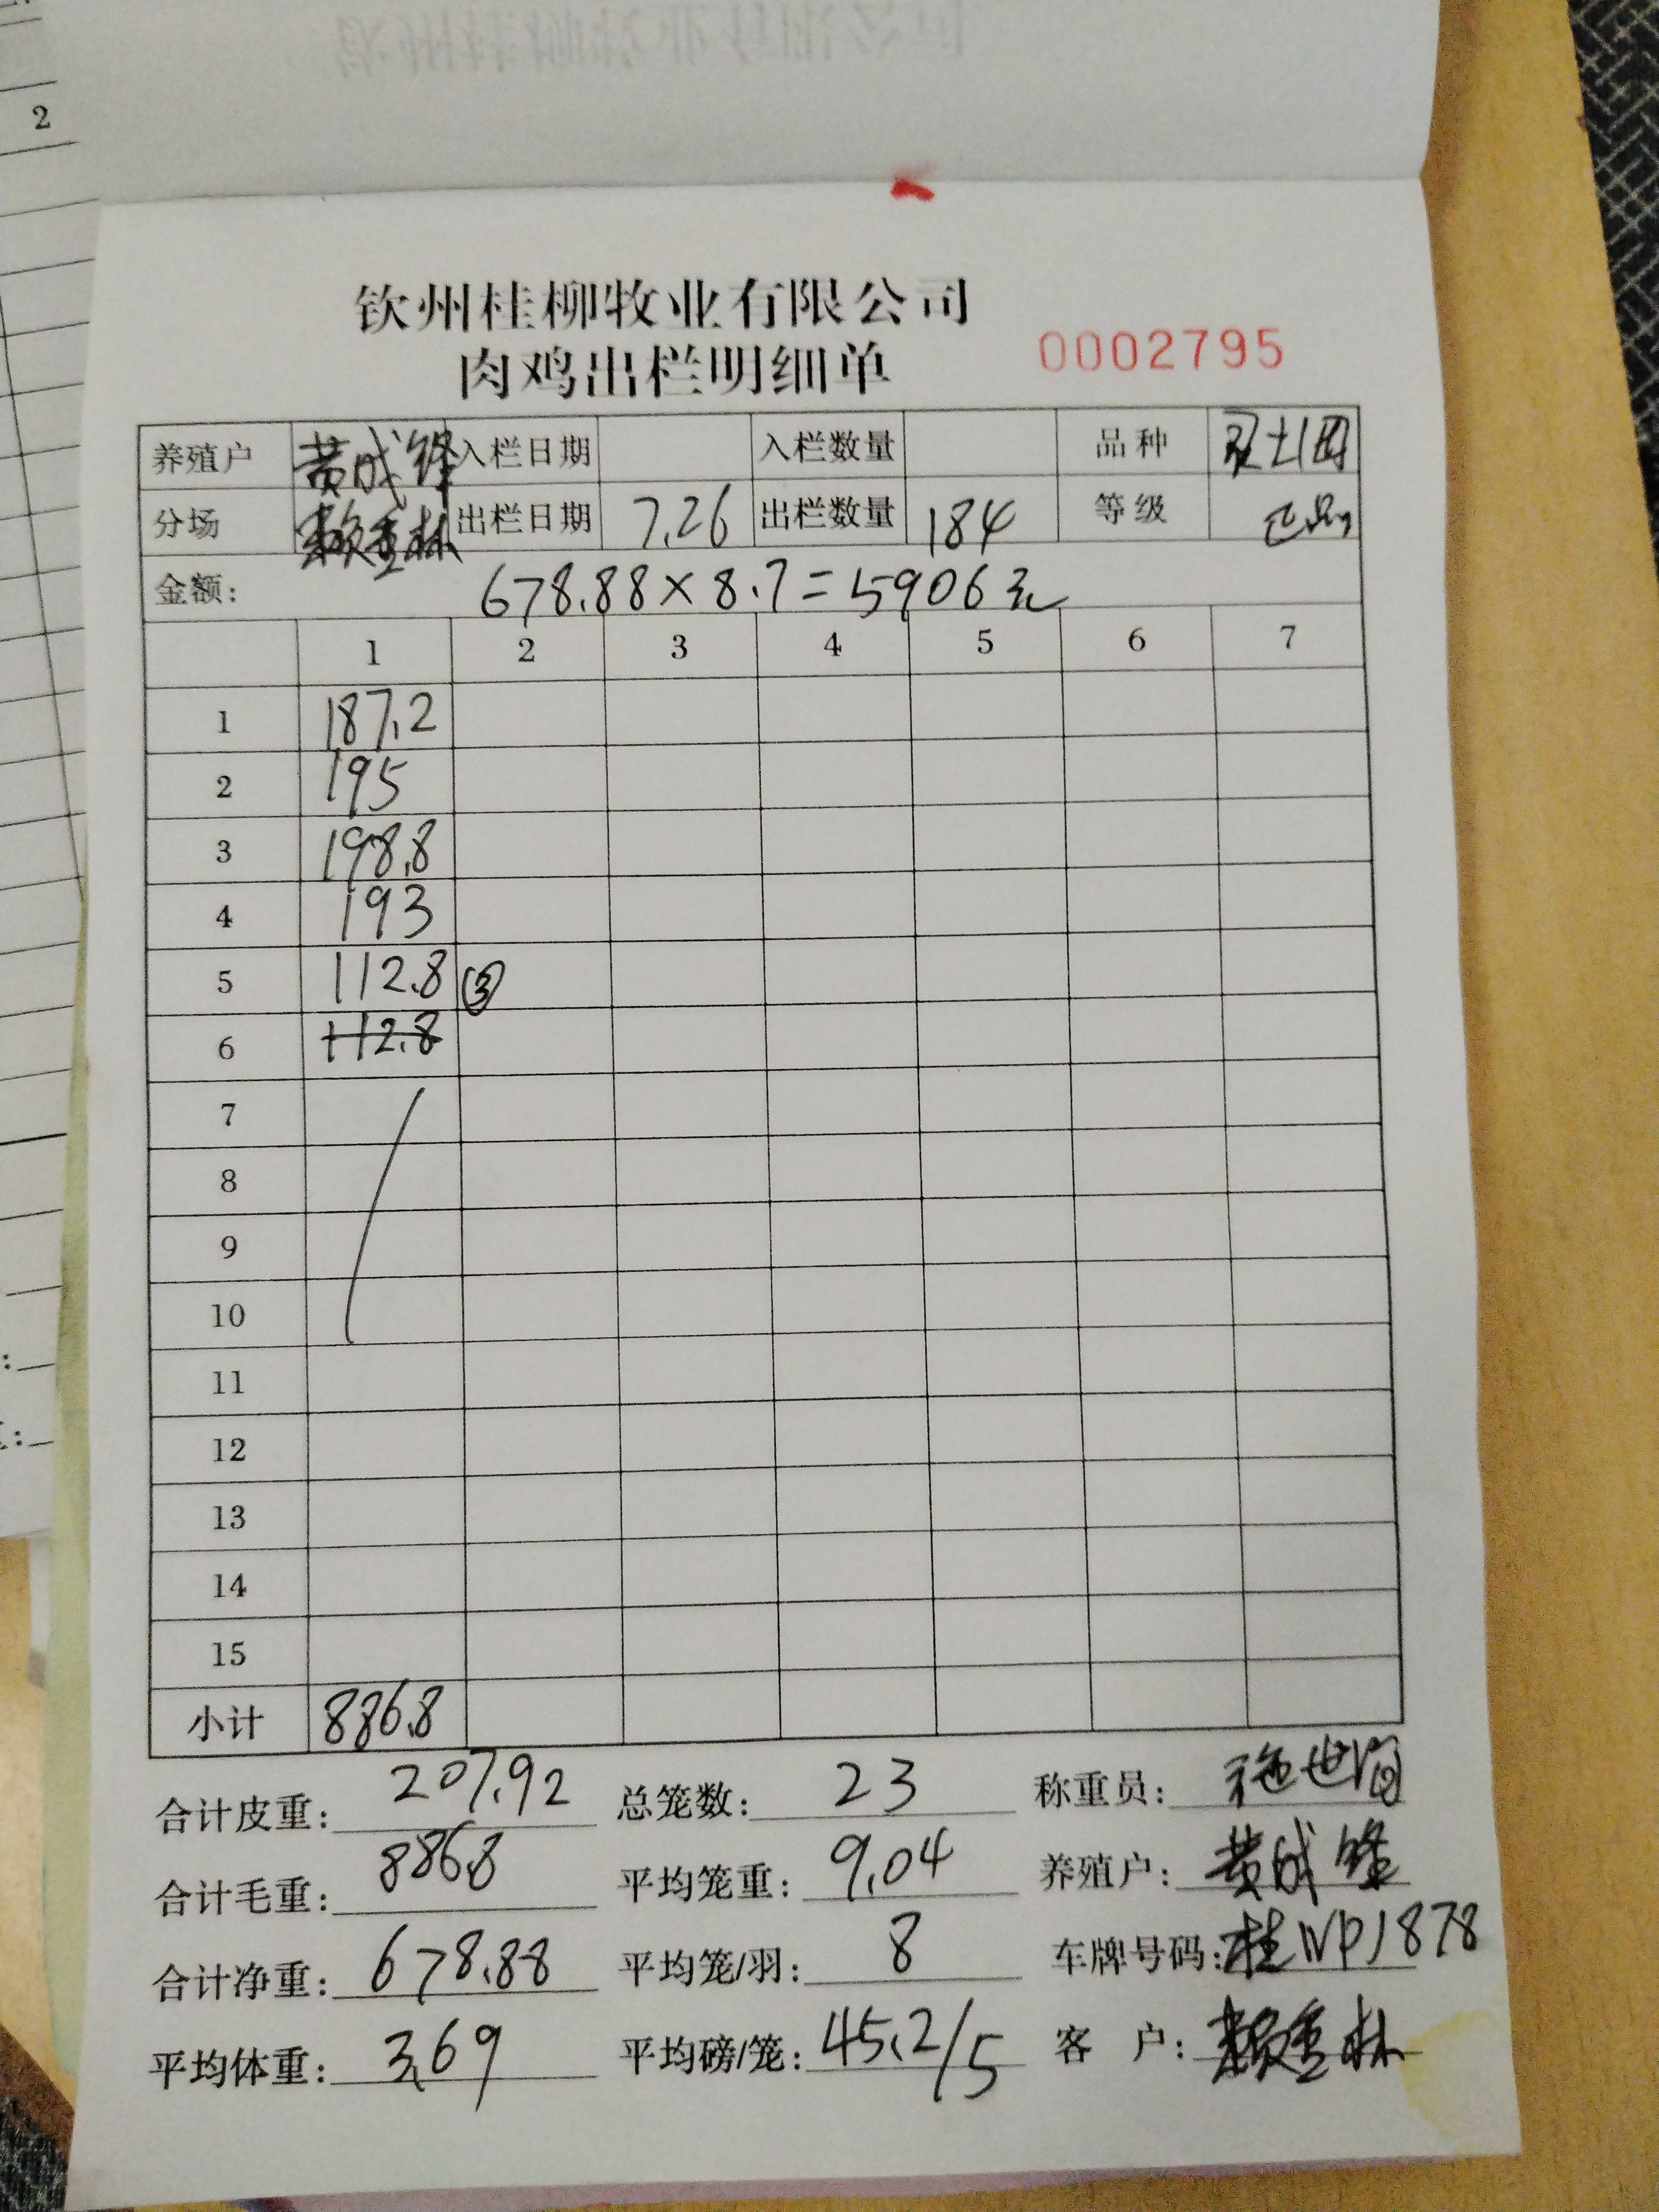 2
钦州桂柳牧业有限公司
肉鸡出栏明细单 0002795
养殖户 黄成锋 入栏日期 入栏数量 品种
分场 赖重林 出栏日期 7.26 出栏数量 184 等级
金额: 678.88×8.7=5906元
1 2 3 4 5 6 7
1 187.2
2 195
3 198.8
4 193
5 112.8 ③
6 112.8
7
8
9
10
11
12
13
14
15
小计 886.8
合计皮重: 207.92 总笼数: 23 称重员:
合计毛重: 886.8 平均笼重: 9.04 养殖户: 黄成锋
合计净重: 678.88 平均笼/羽: 8 车牌号码: 桂NPJ878
平均体重: 3.69 平均磅/笼: 45.2/5 客户: 赖重林